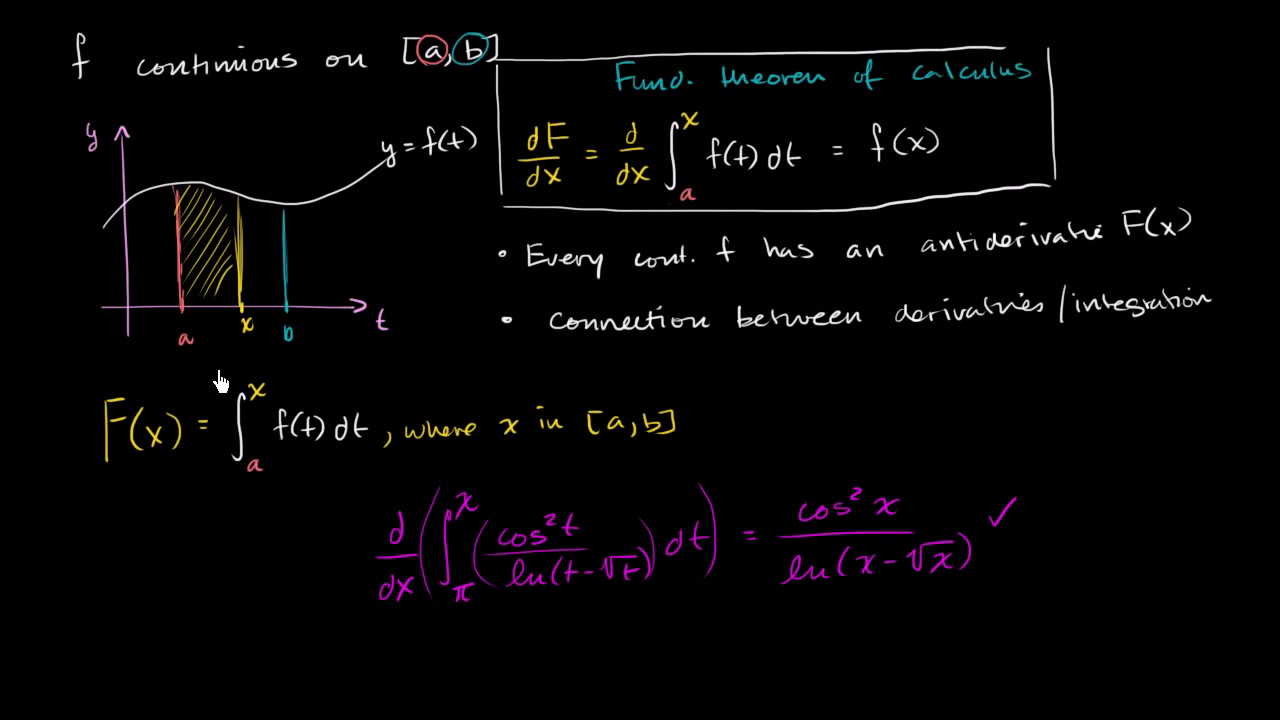 f continuous on [a, b]
Fund. theorem of calculus
dF/dx = d/dx ∫_a^x f(t) dt = f(x)
y
y = f(t)
a x b
t
• Every cont. f has an antiderivative F(x)
• connection between derivatives/integration
F(x) = ∫_a^x f(t) dt, where x in [a, b]
d/dx (∫_π^x (cos²t / ln(t-√t)) dt) = cos²x / ln(x-√x) ✓